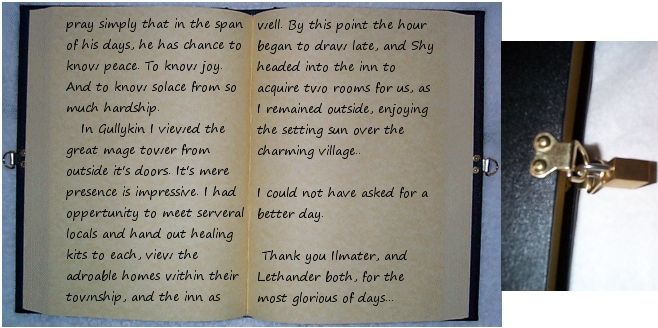 pray simply that in the span
of his days, he has chance to
know peace. To know joy.
And to know solace from so
much hardship.
In Gullykin I viewed the
great mage tower from
outside it's doors. It's mere
presence is impressive. I had
oppertunity to meet serveral
locals and hand out healing
kits to each, view the
adroable homes within their
township, and the inn as
well. By this point the hour
began to draw late, and Shy
headed into the inn to
acquire two rooms for us, as
I remained outside, enjoying
the setting sun over the
charming village..
I could not have asked for a
better day.
Thank you Ilmater, and
Lethander both, for the
most glorious of days...